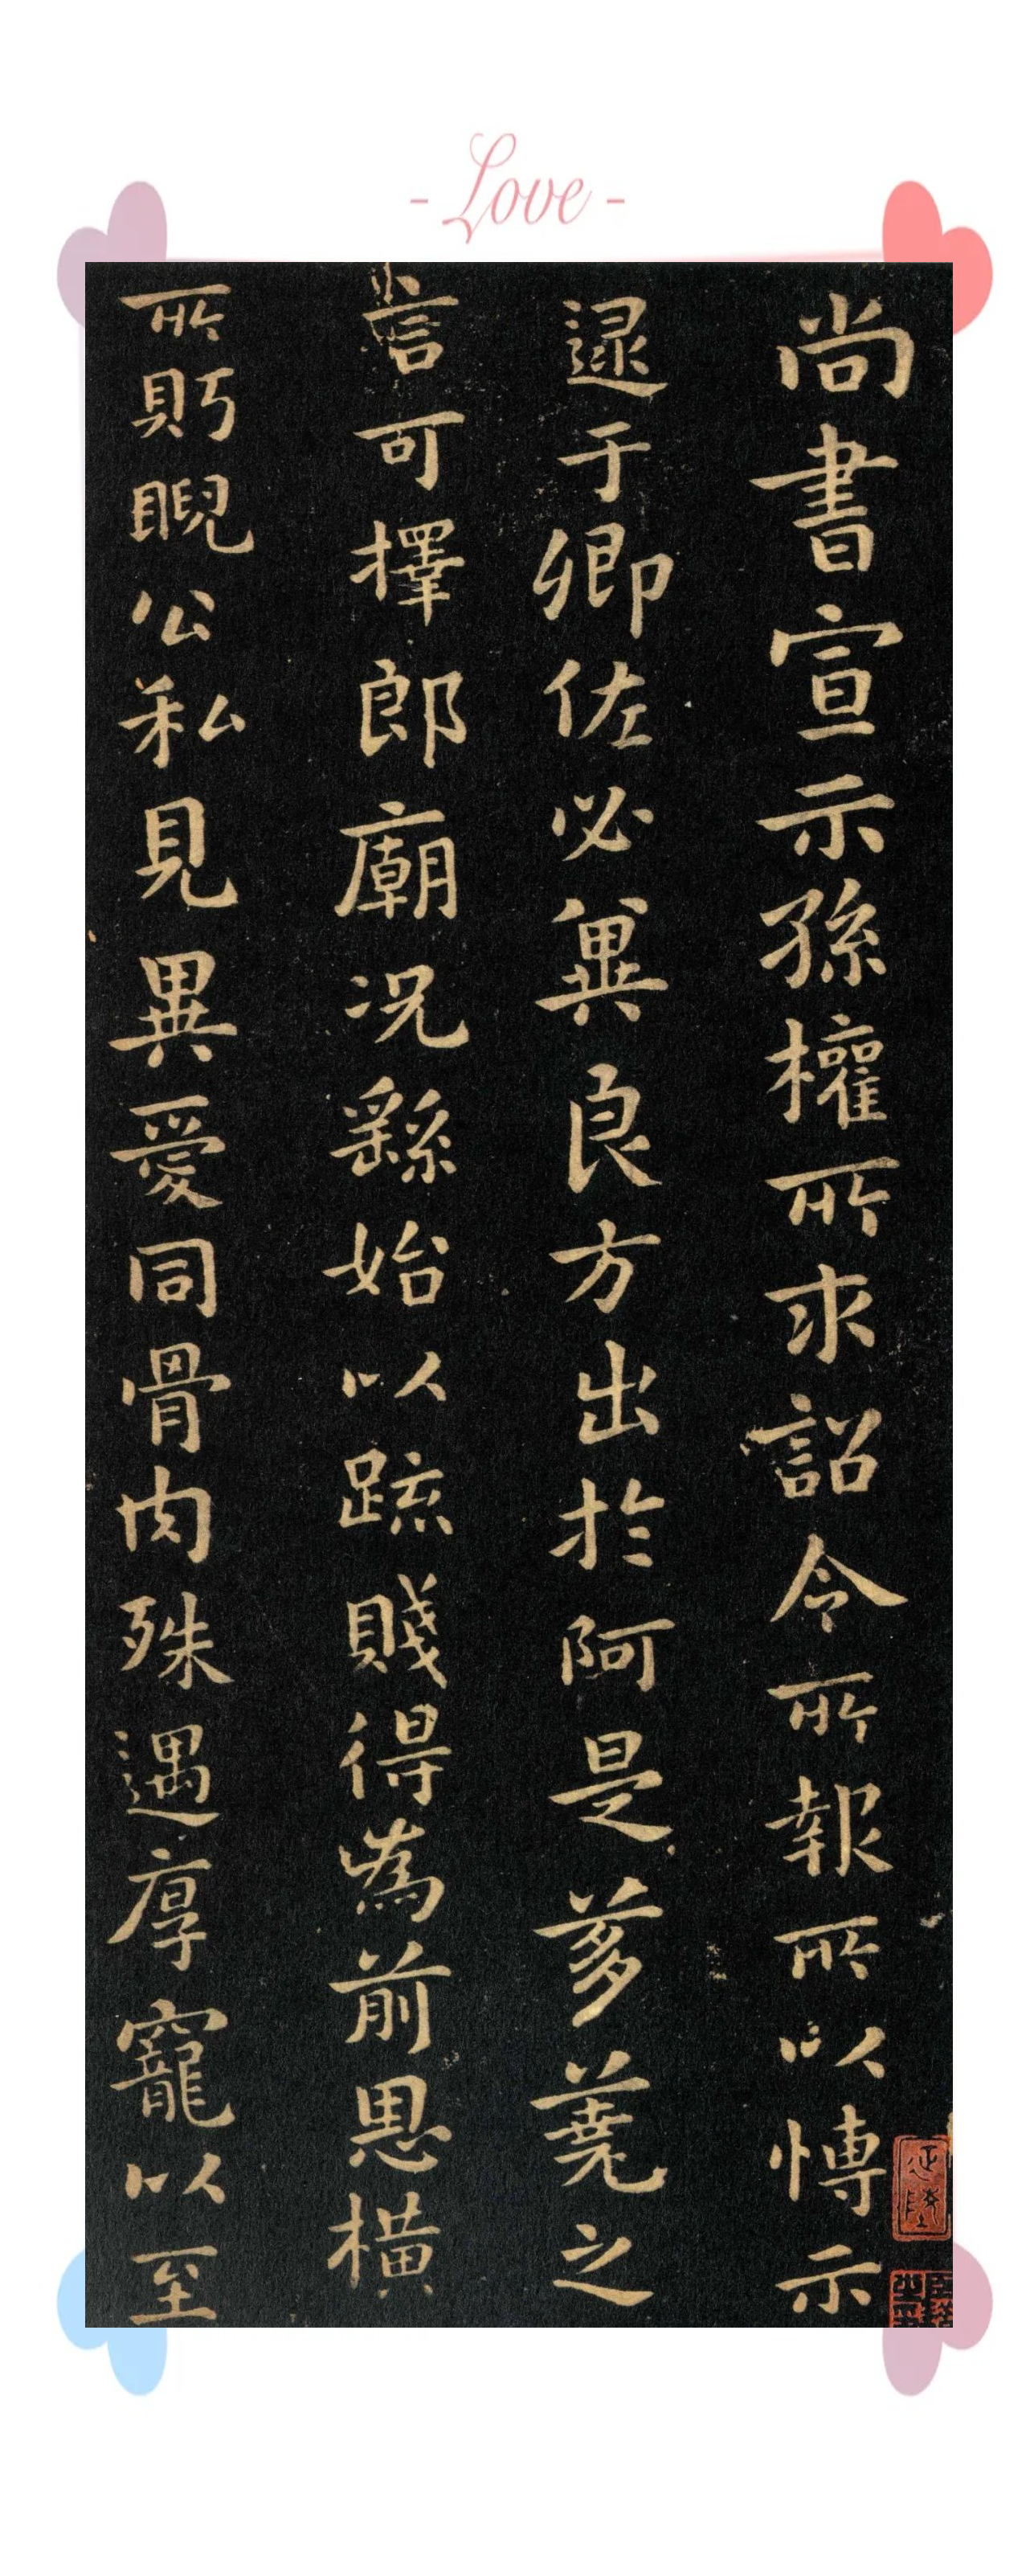 - Love -
尚書宣示孫權所求詔令所報所以博示
逮于卿佐必冀良方出於阿是芻蕘之
言可擇郎廟況繇始以疏賤得為前恩橫
所眄睨公私見異愛同骨肉殊遇厚寵以至